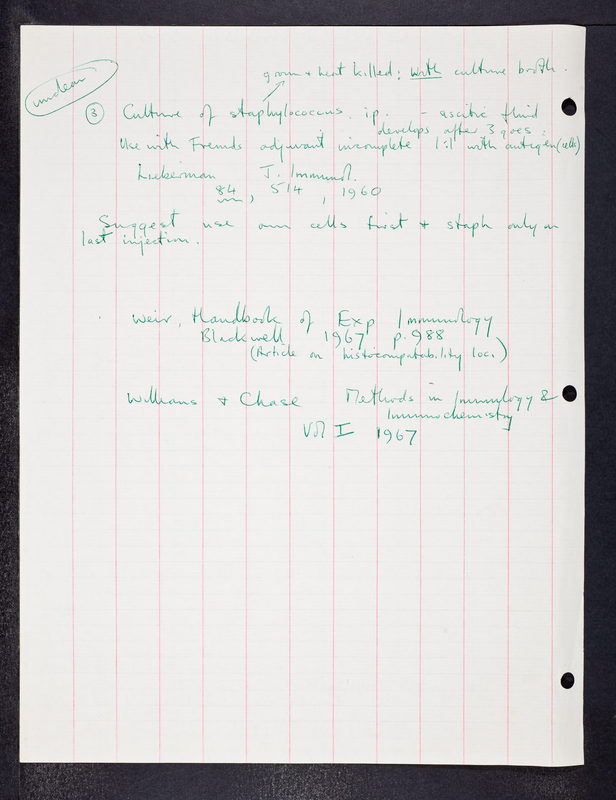 grown & heat killed: with culture broth.
unclear
③ Culture of staphylococcus. ip. - ascitic fluid
develops after 3 goes:
Use with Freunds adjuvant incomplete 1:1 with antigen (cells)
Lieberman J. Immunol.
84, 514, 1960
Suggest use own cells first & staph only on
last injection.
Weir, Handbook of Exp Immunology
Blackwell 1967 p. 988
(Article on histocompatability loci)
Williams & Chase Methods in Immunology &
Immunochemistry
Vol I 1967